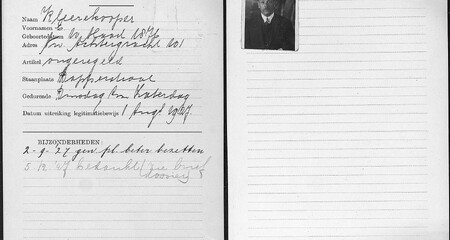 Naam Kleerekooper
Voornamen E.
Geboortedatum 10 Maart 1876
Adres Nw Achtergracht 101
Artikel ongeregeld
Staanplaats Rapperstraat
Gedurende Dinsdag t/m Zaterdag
Datum uitreiking legitimatiebewijs 1 Aug. 1927.
BIJZONDERHEDEN:
2-9-27 gen. pl. beter bezetten
5.12.27 bedankt (zie brief